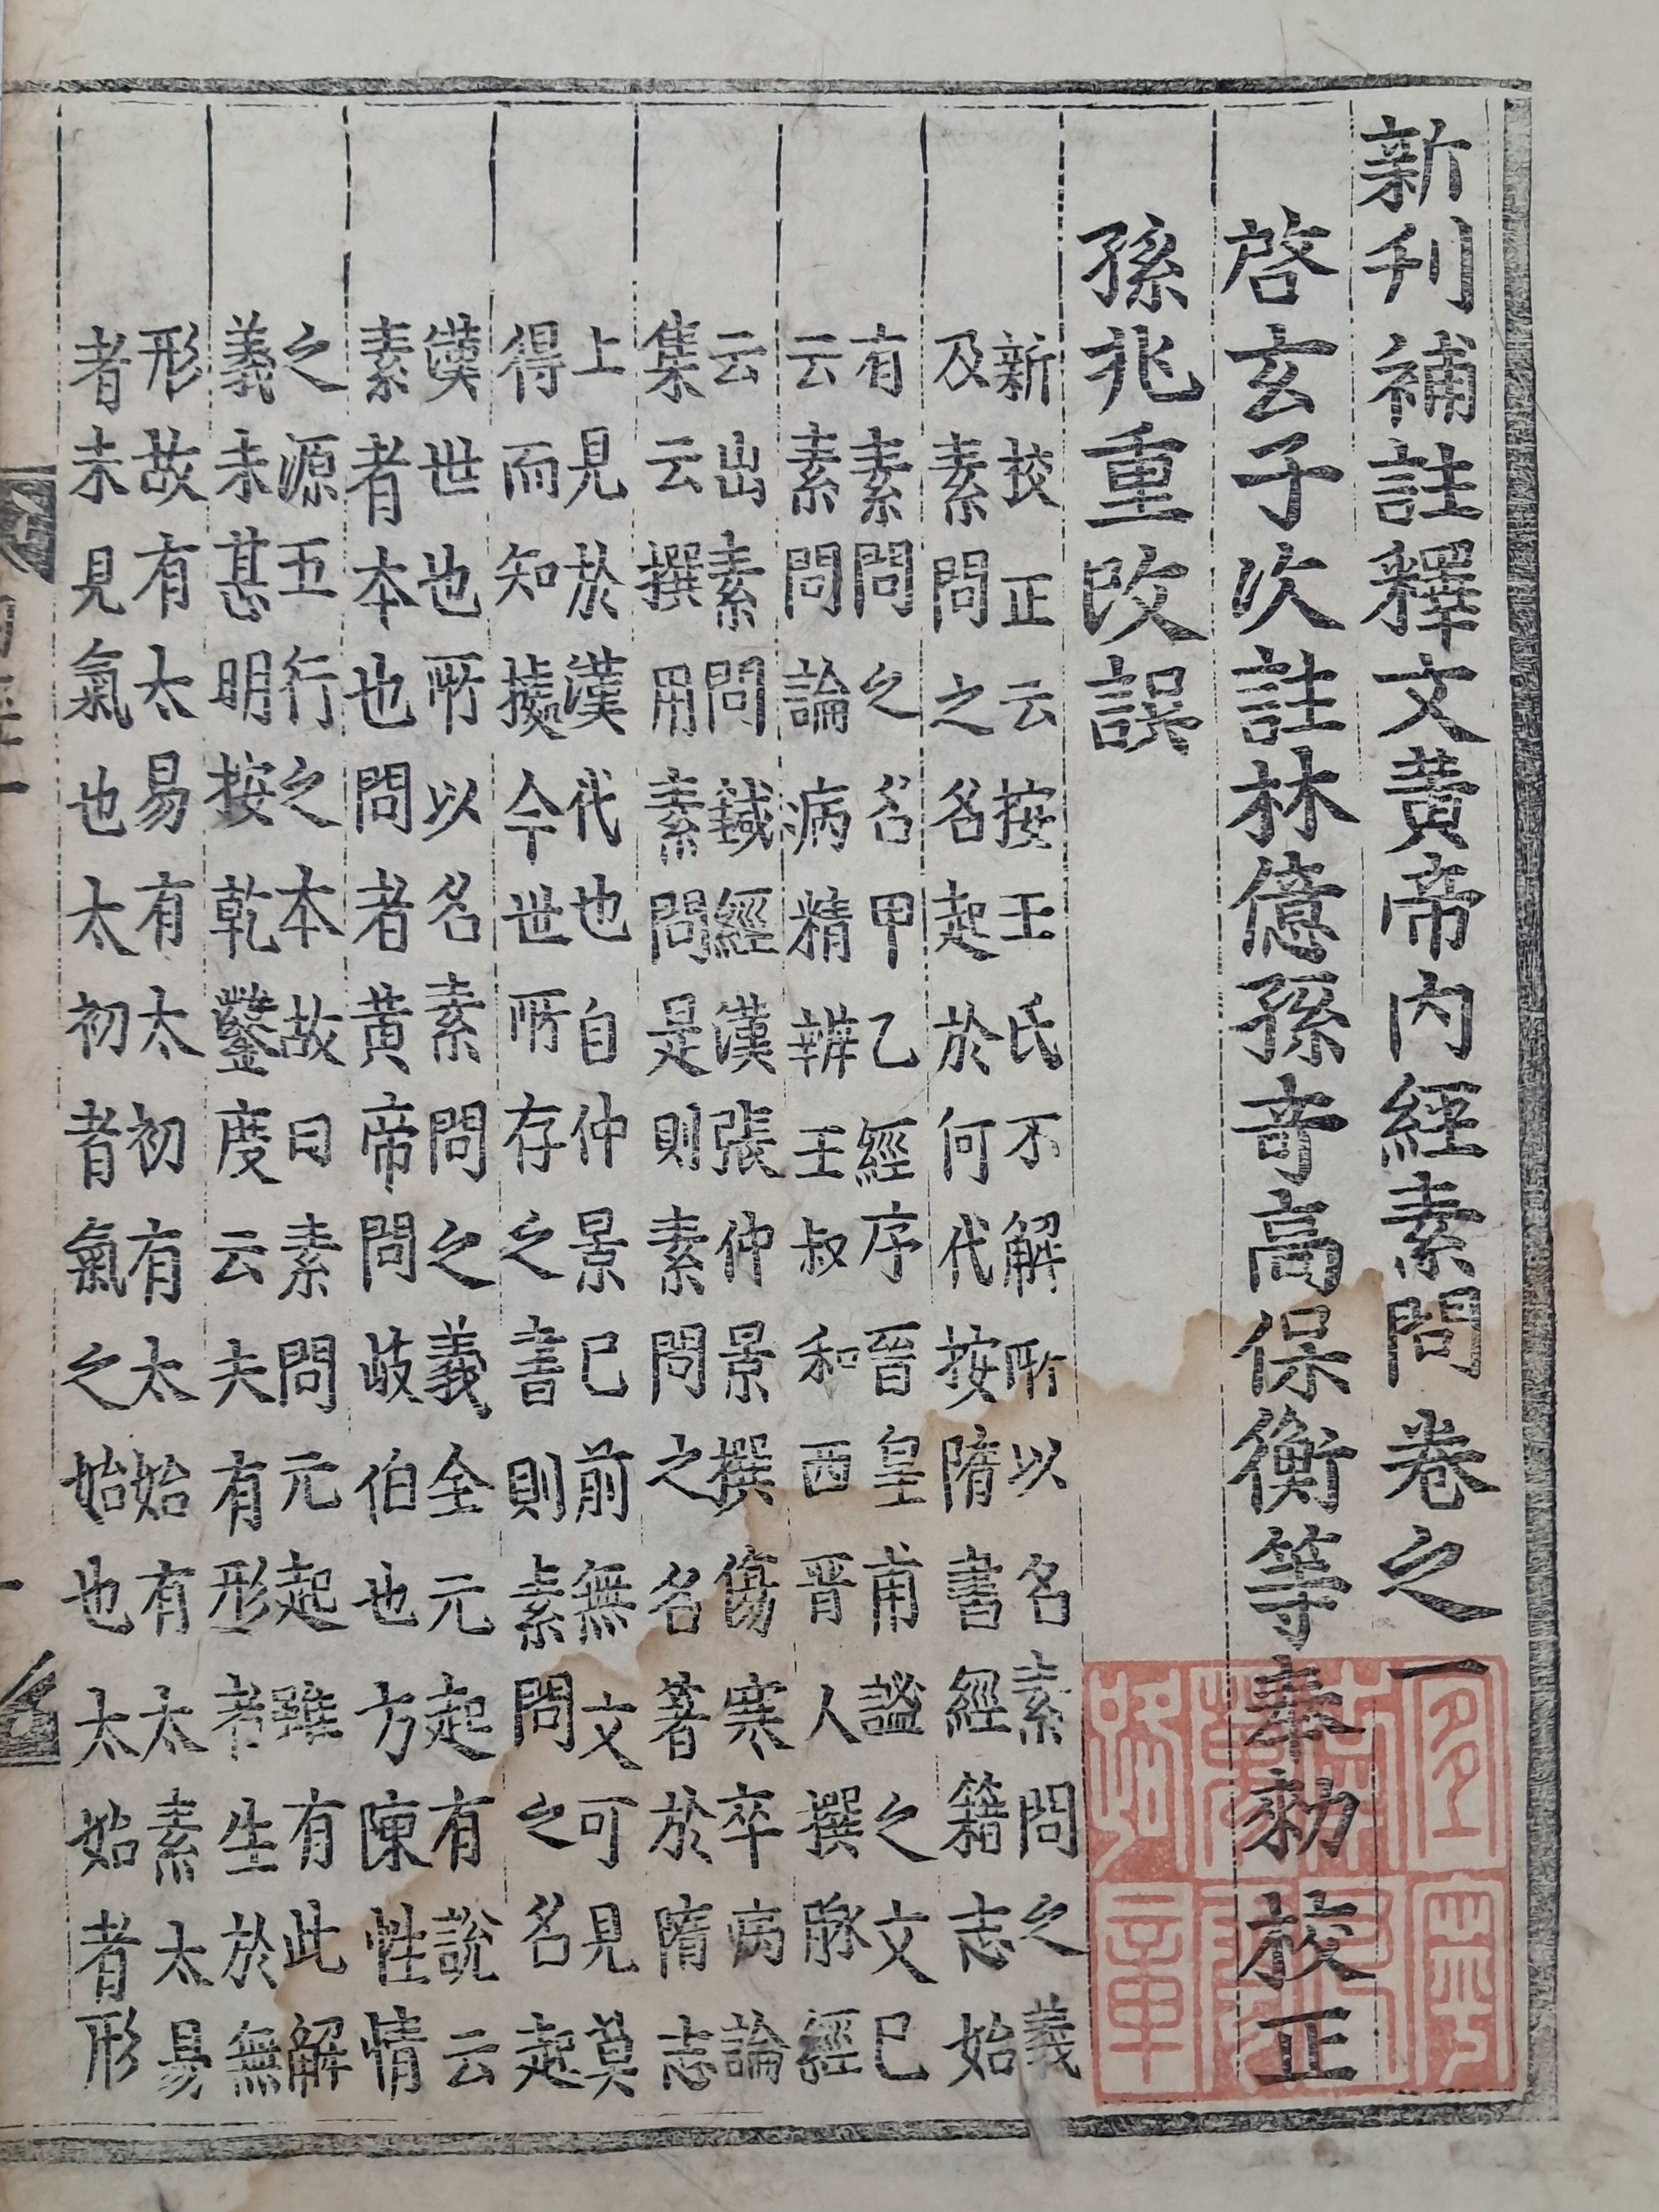 新刊補註釋文黃帝內經素問卷之一
啓玄子次註林億孫奇高保衡等奉勑校正
孫兆重改誤
新校正云按王氏不解所以名素問之義
及素問之名起於何代按隋書經籍志始
有素問之名甲乙經序晉皇甫謐之文已
云素問論病精辨王叔和西晉人撰脉經
云出素問鍼經漢張仲景撰傷寒卒病論
集云撰用素問是則素問之名著於隋志
上見於漢代也自仲景已前無文可見莫
得而知據今世所存之書則素問之名起
漢世也所以名素問之義全元起有說云
素者本也問者黃帝問岐伯也方陳性情
之源五行之本故曰素問元起雖有此解
義未甚明按乾鑿度云夫有形者生於無
形故有太易有太初有太始有太素太易
者未見氣也太初者氣之始也太始者形